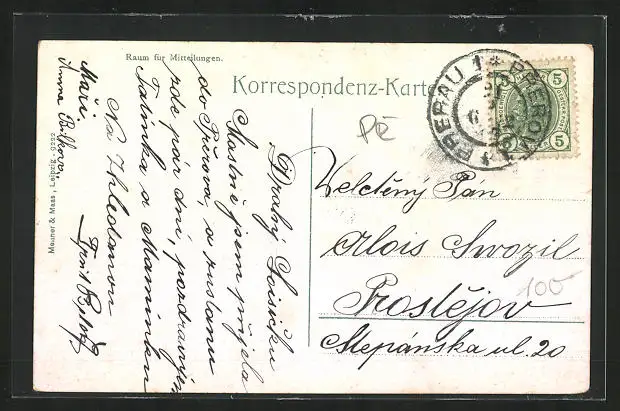 Raum für Mitteilungen.
Korrespondenz-Karte
PRERAU 1 * PŘEROV 1
5 5
Pč
Drahý Loisíčku
šťastně jsem přijela
do Přerova, a zustanu
zde pár dní, pozdravuj
Tatínka a Maminku
Na shledanou
Máři.
Anna Bílková.
Velctěný Pan
Alois Svozil
Prostějov
Štěpánska ul. 20
100
Meuner & Maas, Leipzig. 9222